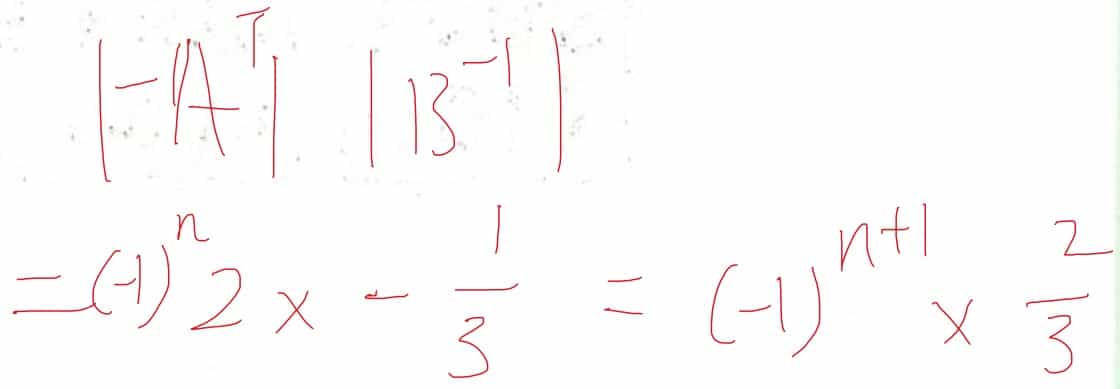 |-A^T| |B^{-1}|
=(-1)^n 2 × - 1/3 = (-1)^{n+1} × 2/3